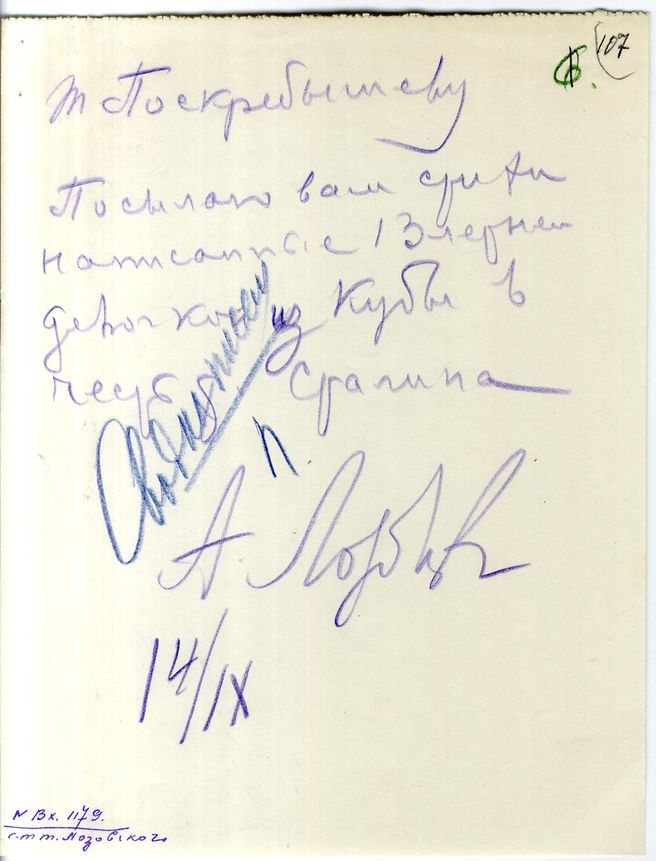 107
т Поскребышеву
Посылаю вам стихи
написанные 13 летней
девочкой из Кубы в
честь т Сталина
п.
А. Лозовск
14/IX
N Вх. 1179.
с.т т. Лозовского